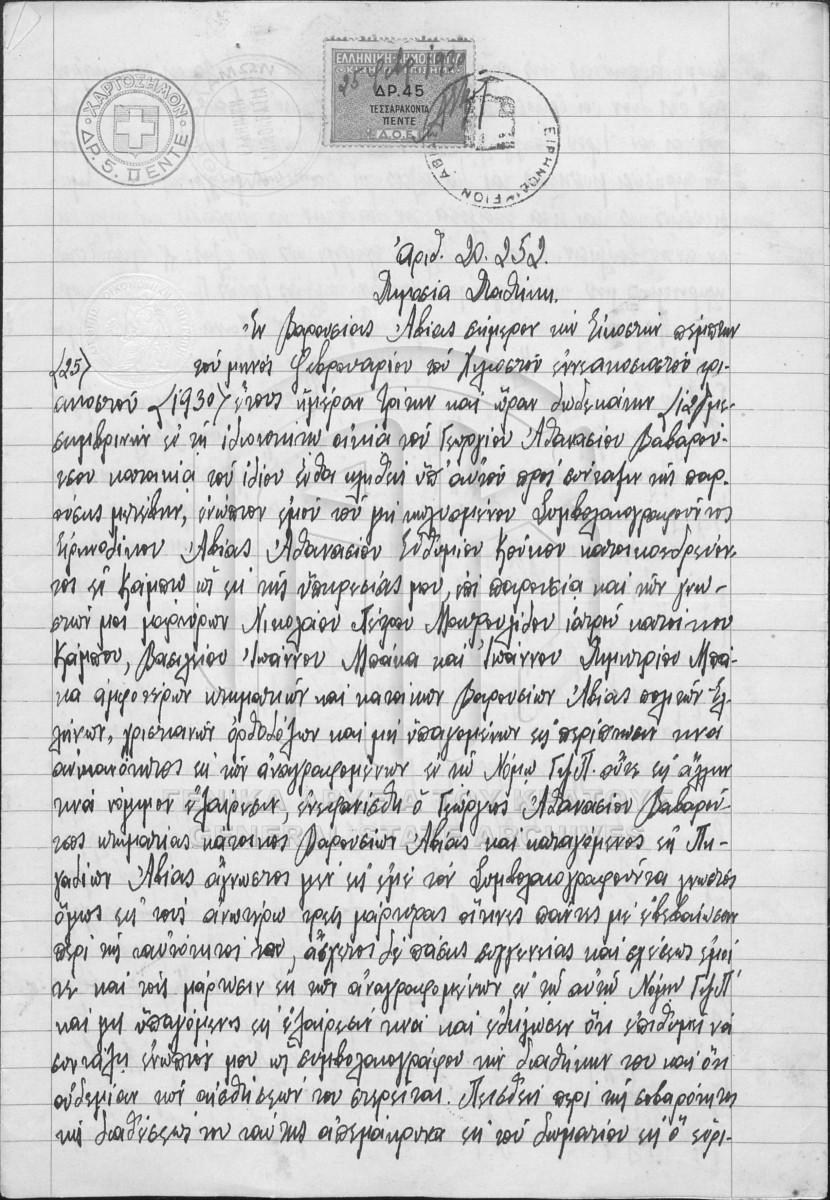 ΧΑΡΤΟΣΗΜΟΝ
ΔΡ. 5. ΠΕΝΤΕ
ΕΛΛΗΝΙΚΗ ΔΗΜΟΚΡΑΤΙΑ
ΔΡ. 45
ΤΕΣΣΑΡΑΚΟΝΤΑ
ΠΕΝΤΕ
Δ.Ο.Ε.
ΕΙΡΗΝΟΔΙΚΕΙΟΝ ΑΒΙΑΣ
Ἀριθ. 20.252.
Δημοσία Διαθήκη.
Ἐν Βαρουσίοις Ἀβίας σήμερον τὴν Εἰκοστὴν πέμπτην
(25) τοῦ μηνὸς Φεβρουαρίου τοῦ Χιλιοστοῦ ἐννεακοσιοστοῦ τρι-
ακοστοῦ (1930) ἔτους ἡμέραν Τρίτην καὶ ὥραν δωδεκάτην (12) με-
σημβρινὴν ἐν τῇ ἰδιοκτήτῳ οἰκίᾳ τοῦ Γεωργίου Ἀθανασίου Βαβαρού-
τσου κατοικία τοῦ ἰδίου ἔνθα κληθεὶς ὑπ' αὐτοῦ πρὸς σύνταξιν τῆς παρ-
ούσης μετέβην, ἐνώπιον ἐμοῦ τοῦ μὴ κωλυομένου Συμβολαιογραφοῦντος
Εἰρηνοδίκου Ἀβίας Ἀθανασίου Εὐθυμίου Κούκου κατοικοεδρεύον-
τος ἐν Κάμπῳ ὡς ἐκ τῆς ὑπηρεσίας μου, ἐπὶ παρουσίᾳ καὶ τῶν γνω-
στῶν μοι μαρτύρων Νικολάου Πέτρου ἰατροῦ κατοίκου
Κάμπου, Βασιλείου Ἰωάννου Μπάκα καὶ Ἰωάννου Δημητρίου Μπά-
κα ἀμφοτέρων κτηματιῶν καὶ κατοίκων Βαρουσίων Ἀβίας πολιτῶν Ἑλ-
λήνων, χριστιανῶν ὀρθοδόξων καὶ μὴ ὑπαγομένων εἰς περίπτωσίν τινα
ἀνικανότητος ἐκ τῶν ἀναγραφομένων ἐν τῷ Νόμῳ ΓΨΛΠ. οὔτε εἰς ἄλλην
τινὰ νόμιμον ἐξαίρεσιν, ἐνεφανίσθη ὁ Γεώργιος Ἀθανασίου Βαβαρού-
τσος κτηματίας κάτοικος Βαρουσίων Ἀβίας καὶ καταγόμενος ἐκ Πη-
γαδίων Ἀβίας ἄγνωστος μὲν εἰς ἐμὲ τὸν Συμβολαιογραφοῦντα γνωστὸς
ὅμως εἰς τοὺς ἀνωτέρω τρεῖς μάρτυρας οἵτινες πάντες μὲ ἐβεβαίωσαν
περὶ τῆς ταὐτότητός του, ἄσχετος δὲ πάσης συγγενείας καὶ σχέσεως ἐμοί
τε καὶ τοῖς μάρτυσιν ἐκ τῶν ἀναγραφομένων ἐν τῷ αὐτῷ Νόμῳ ΓΨΛΠ
καὶ μὴ ὑπαγόμενος εἰς ἐξαίρεσίν τινα καὶ ἐδήλωσεν ὅτι ἐπιθυμεῖ νὰ
συντάξῃ ἐνώπιόν μου ὡς συμβολαιογράφου τὴν διαθήκην του καὶ ὅτι
οὐδεμίαν τῶν αἰσθήσεών του στερεῖται. Πεισθεὶς περὶ τῆς σοβαρότητος
τῆς διαθέσεώς του ταύτης ἀπεμάκρυνα ἐκ τοῦ δωματίου εἰς ὃ εὑρί-
ΓΕΝΙΚΑ ΑΡΧΕΙΑ ΤΟΥ ΚΡΑΤΟΥΣ
GENERAL STATE ARCHIVES